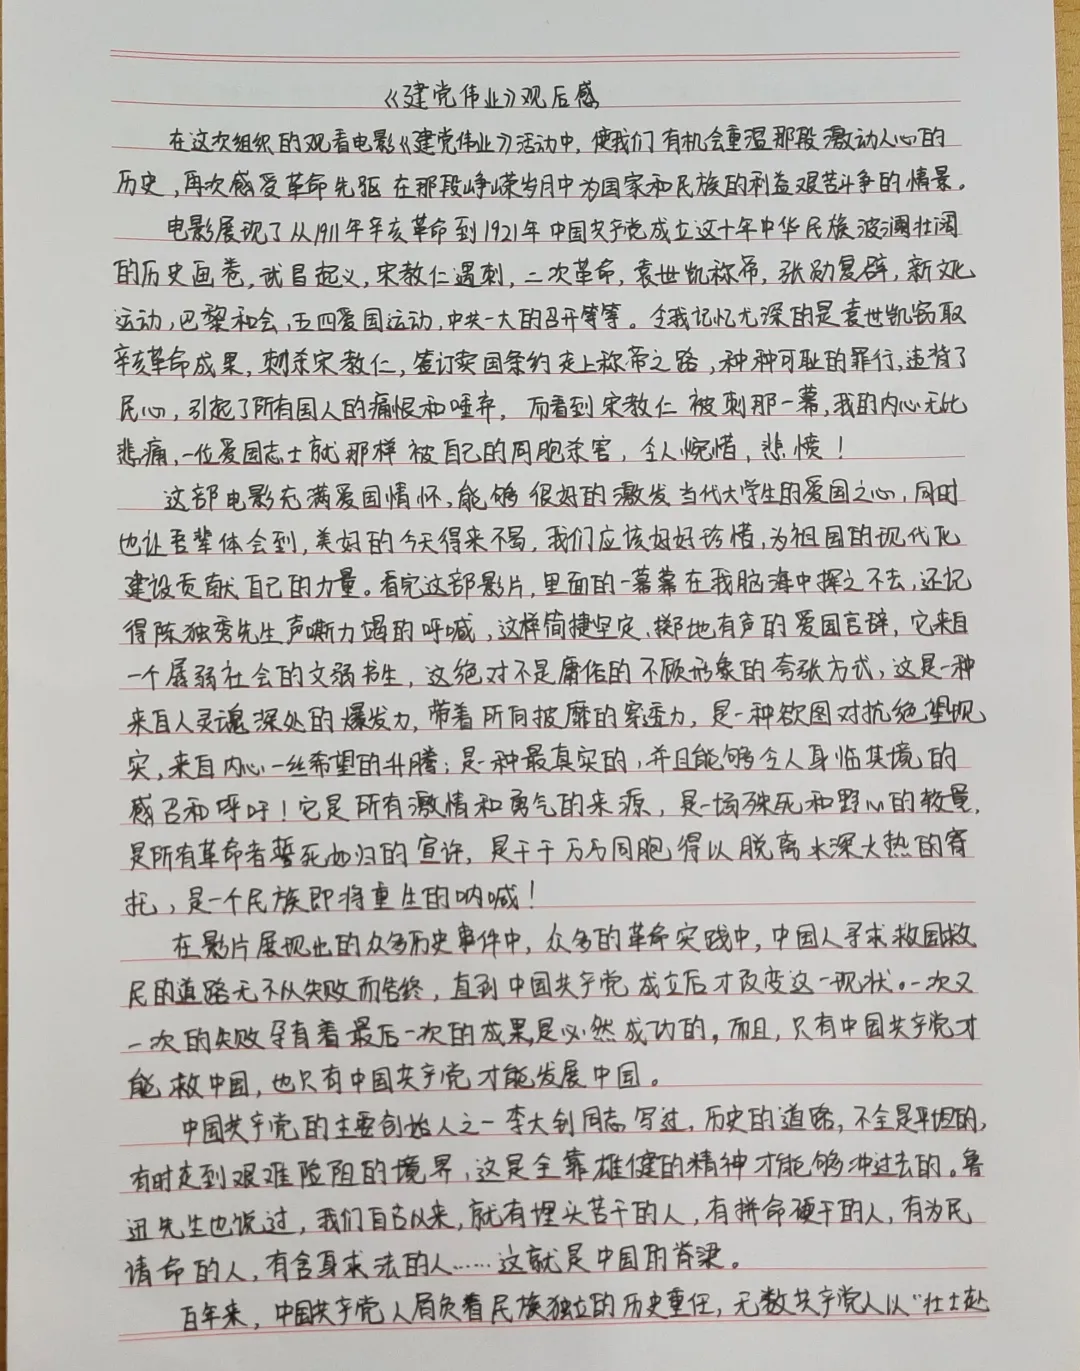 《建党伟业》观后感
在这次组织的观看电影《建党伟业》活动中，使我们有机会重温那段激动人心的
历史，再次感受革命先驱在那段峥嵘岁月中为国家和民族的利益艰苦斗争的情景。
电影展现了从1911年辛亥革命到1921年中国共产党成立这十年中华民族波澜壮阔
的历史画卷，武昌起义，宋教仁遇刺，二次革命，袁世凯称帝，张勋复辟，新文化
运动，巴黎和会，五四爱国运动，中共一大的召开等等。令我记忆尤深的是袁世凯窃取
辛亥革命成果，刺杀宋教仁，签订卖国条约走上称帝之路，种种可耻的罪行，违背了
民心，引起了所有国人的痛恨和唾弃，而看到宋教仁被刺那一幕，我的内心无比
悲痛，一位爱国志士就那样被自己的同胞杀害，令人惋惜，悲愤！
这部电影充满爱国情怀，能够很好的激发当代大学生的爱国之心，同时
也让吾辈体会到，美好的今天得来不易，我们应该好好珍惜，为祖国的现代化
建设贡献自己的力量。看完这部影片，里面的一幕幕在我脑海中挥之不去，还记
得陈独秀先生声嘶力竭的呼喊，这样简捷坚定、掷地有声的爱国言辞，它来自
一个孱弱社会的文弱书生，这绝对不是庸俗的不顾形象的夸张方式，这是一种
来自人灵魂深处的爆发力，带着所向披靡的穿透力，是一种欲图对抗绝望现
实，来自内心一丝希望的升腾；是一种最真实的，并且能够令人身临其境的
感召和呼吁！它是所有激情和勇气的来源，是一场殊死和野心的较量，
是所有革命者誓死如归的宣许，是千千万万同胞得以脱离水深火热的寄
托，是一个民族即将重生的呐喊！
在影片展现出的众多历史事件中，众多的革命实践中，中国人寻求救国救
民的道路无不以失败而告终，直到中国共产党成立后才改变这一现状。一次又
一次的失败孕育着最后一次的成果，是必然成功的。而且，只有中国共产党才
能救中国，也只有中国共产党才能发展中国。
中国共产党的主要创始人之一李大钊同志写过，历史的道路，不全是平坦的，
有时走到艰难险阻的境界，这是全靠雄健的精神才能够冲过去的。鲁
迅先生也说过，我们自古以来，就有埋头苦干的人，有拼命硬干的人，有为民
请命的人，有舍身求法的人……这就是中国的脊梁。
百年来，中国共产党人肩负着民族独立的历史重任，无数共产党人以“壮士赴